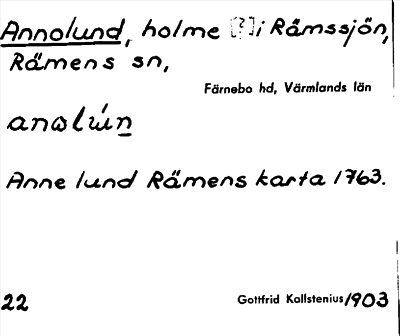 Annolund, holme [?] i Rämssjön,
Rämens sn,
Färnebo hd, Värmlands län
anωlẃn
Anne lund Rämens karta 1763.
22
Gottfrid Kallstenius 1903